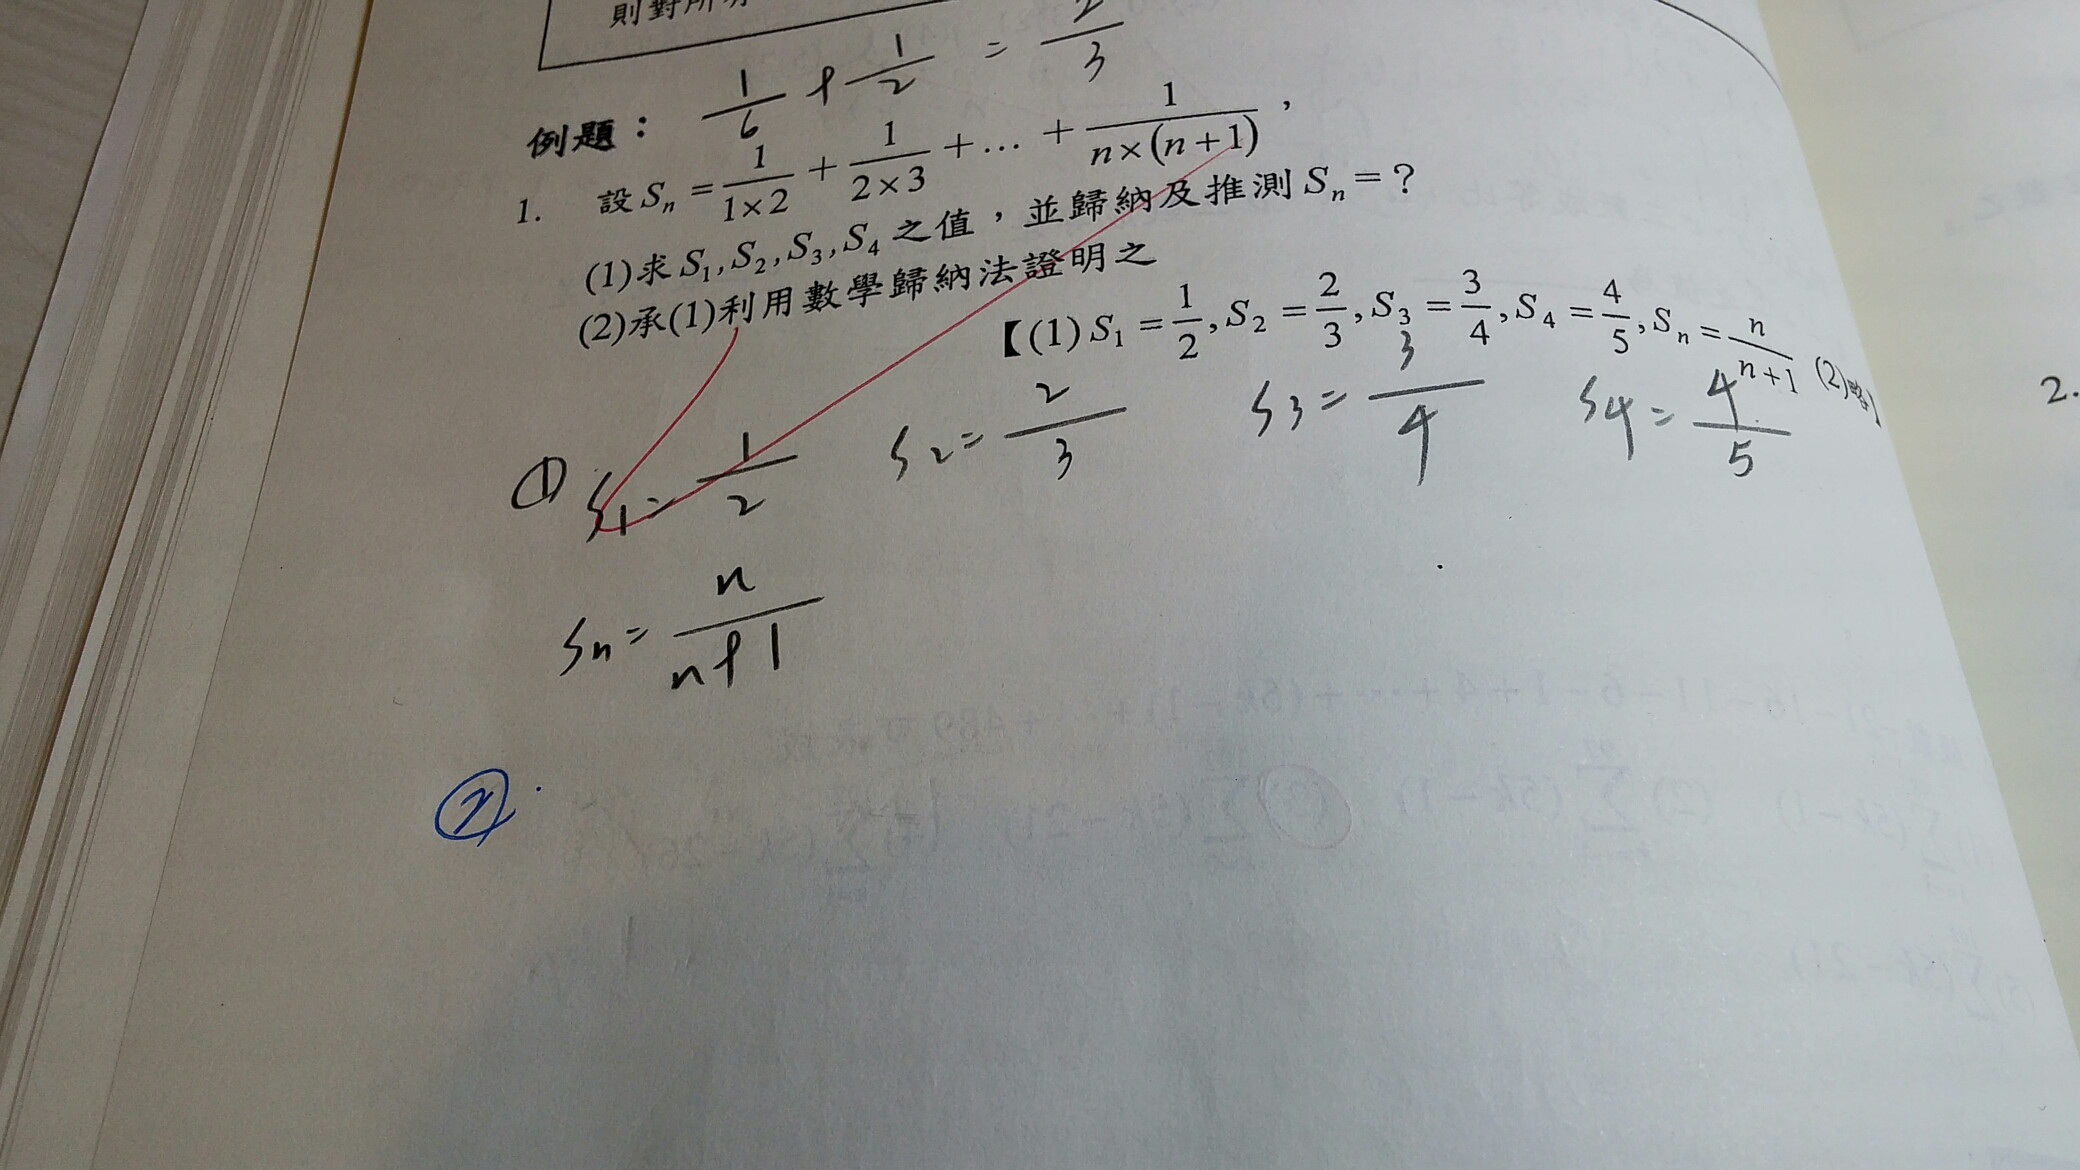 則對所
1/6 + 1/2 = 2/3
例題：
1. 設 Sₙ = 1/(1×2) + 1/(2×3) + … + 1/(n×(n+1))，
(1)求 S₁,S₂,S₃,S₄ 之值，並歸納及推測 Sₙ = ?
(2)承(1)利用數學歸納法證明之
【(1) S₁ = 1/2, S₂ = 2/3, S₃ = 3/4, S₄ = 4/5, Sₙ = n/(n+1) (2)略】
① S1 = 1/2 S2 = 2/3 S3 = 3/4 S4 = 4/5
Sn = n/(n+1)
②
2.